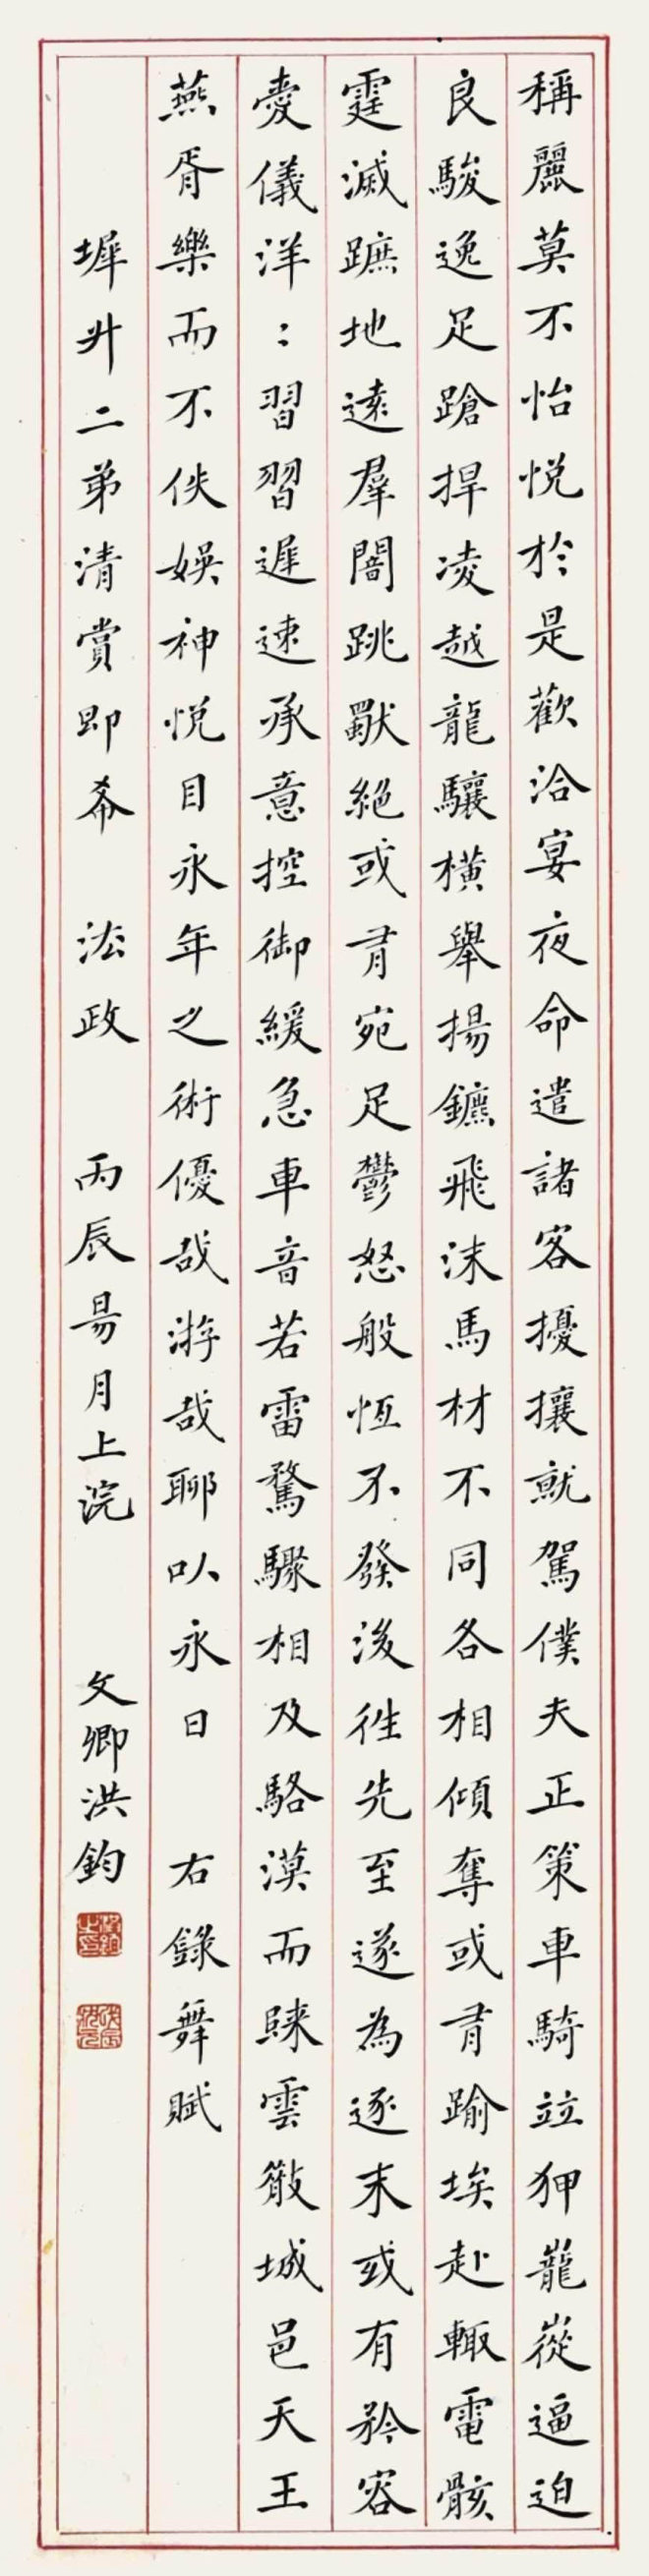 稱麗莫不怡悅於是歡洽宴夜命遣諸客擾攘就駕僕夫正策車騎竝狎巃嵸逼迫
良駿逸足蹌捍凌越龍驤橫舉揚鑣飛沫馬材不同各相傾奪或有踰埃赴轍電骸
霆滅蹠地遠羣闇跳獸絕或有宛足鬱怒般恆不發後往先至遂為逐末或有矜容
愛儀洋：習習遲速承意控御緩急車音若雷騖驟相及駱漠而歸雲散城邑天王
燕胥樂而不佚娛神悅目永年之術優哉游哉聊以永日　右錄舞賦
墀升二弟清賞即希　法政　丙辰昜月上浣　文卿洪鈞